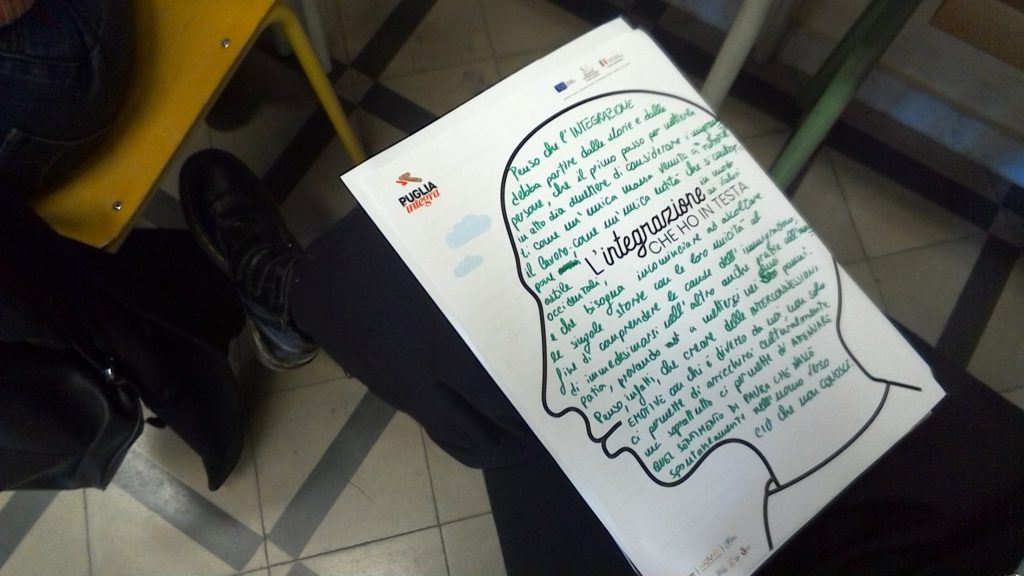 PUGLIA
integra
L'integrazione
CHE HO IN TESTA
Penso che l'INTEGRAZIONE
debba partire dalle storie e dalle
persone, che il primo passo per metterla
in atto sia smettere di considerare i migranti
come un'unica massa venuta a "rubarci"
il lavoro, come un'unica entità che
occidentali,
e che bisogna incominciare ad ascoltare
le singole storie con le loro unicità al
fine di comprendere le cause dell'immigrazione,
di immedesimarsi nell'altro anche grazie all'em-
patia, provando a mettersi nei suoi panni.
Penso, infatti, che creare delle INTERCONNESSIONI
EMOTIVE con chi è diverso da noi non solo
ci permette di arricchirci culturalmente
ma soprattutto ci permette di ARGINARE
QUEL SENTIMENTO DI PAURA CHE NASCE
spontaneamente nell'uomo verso
ciò che non CONOSCE